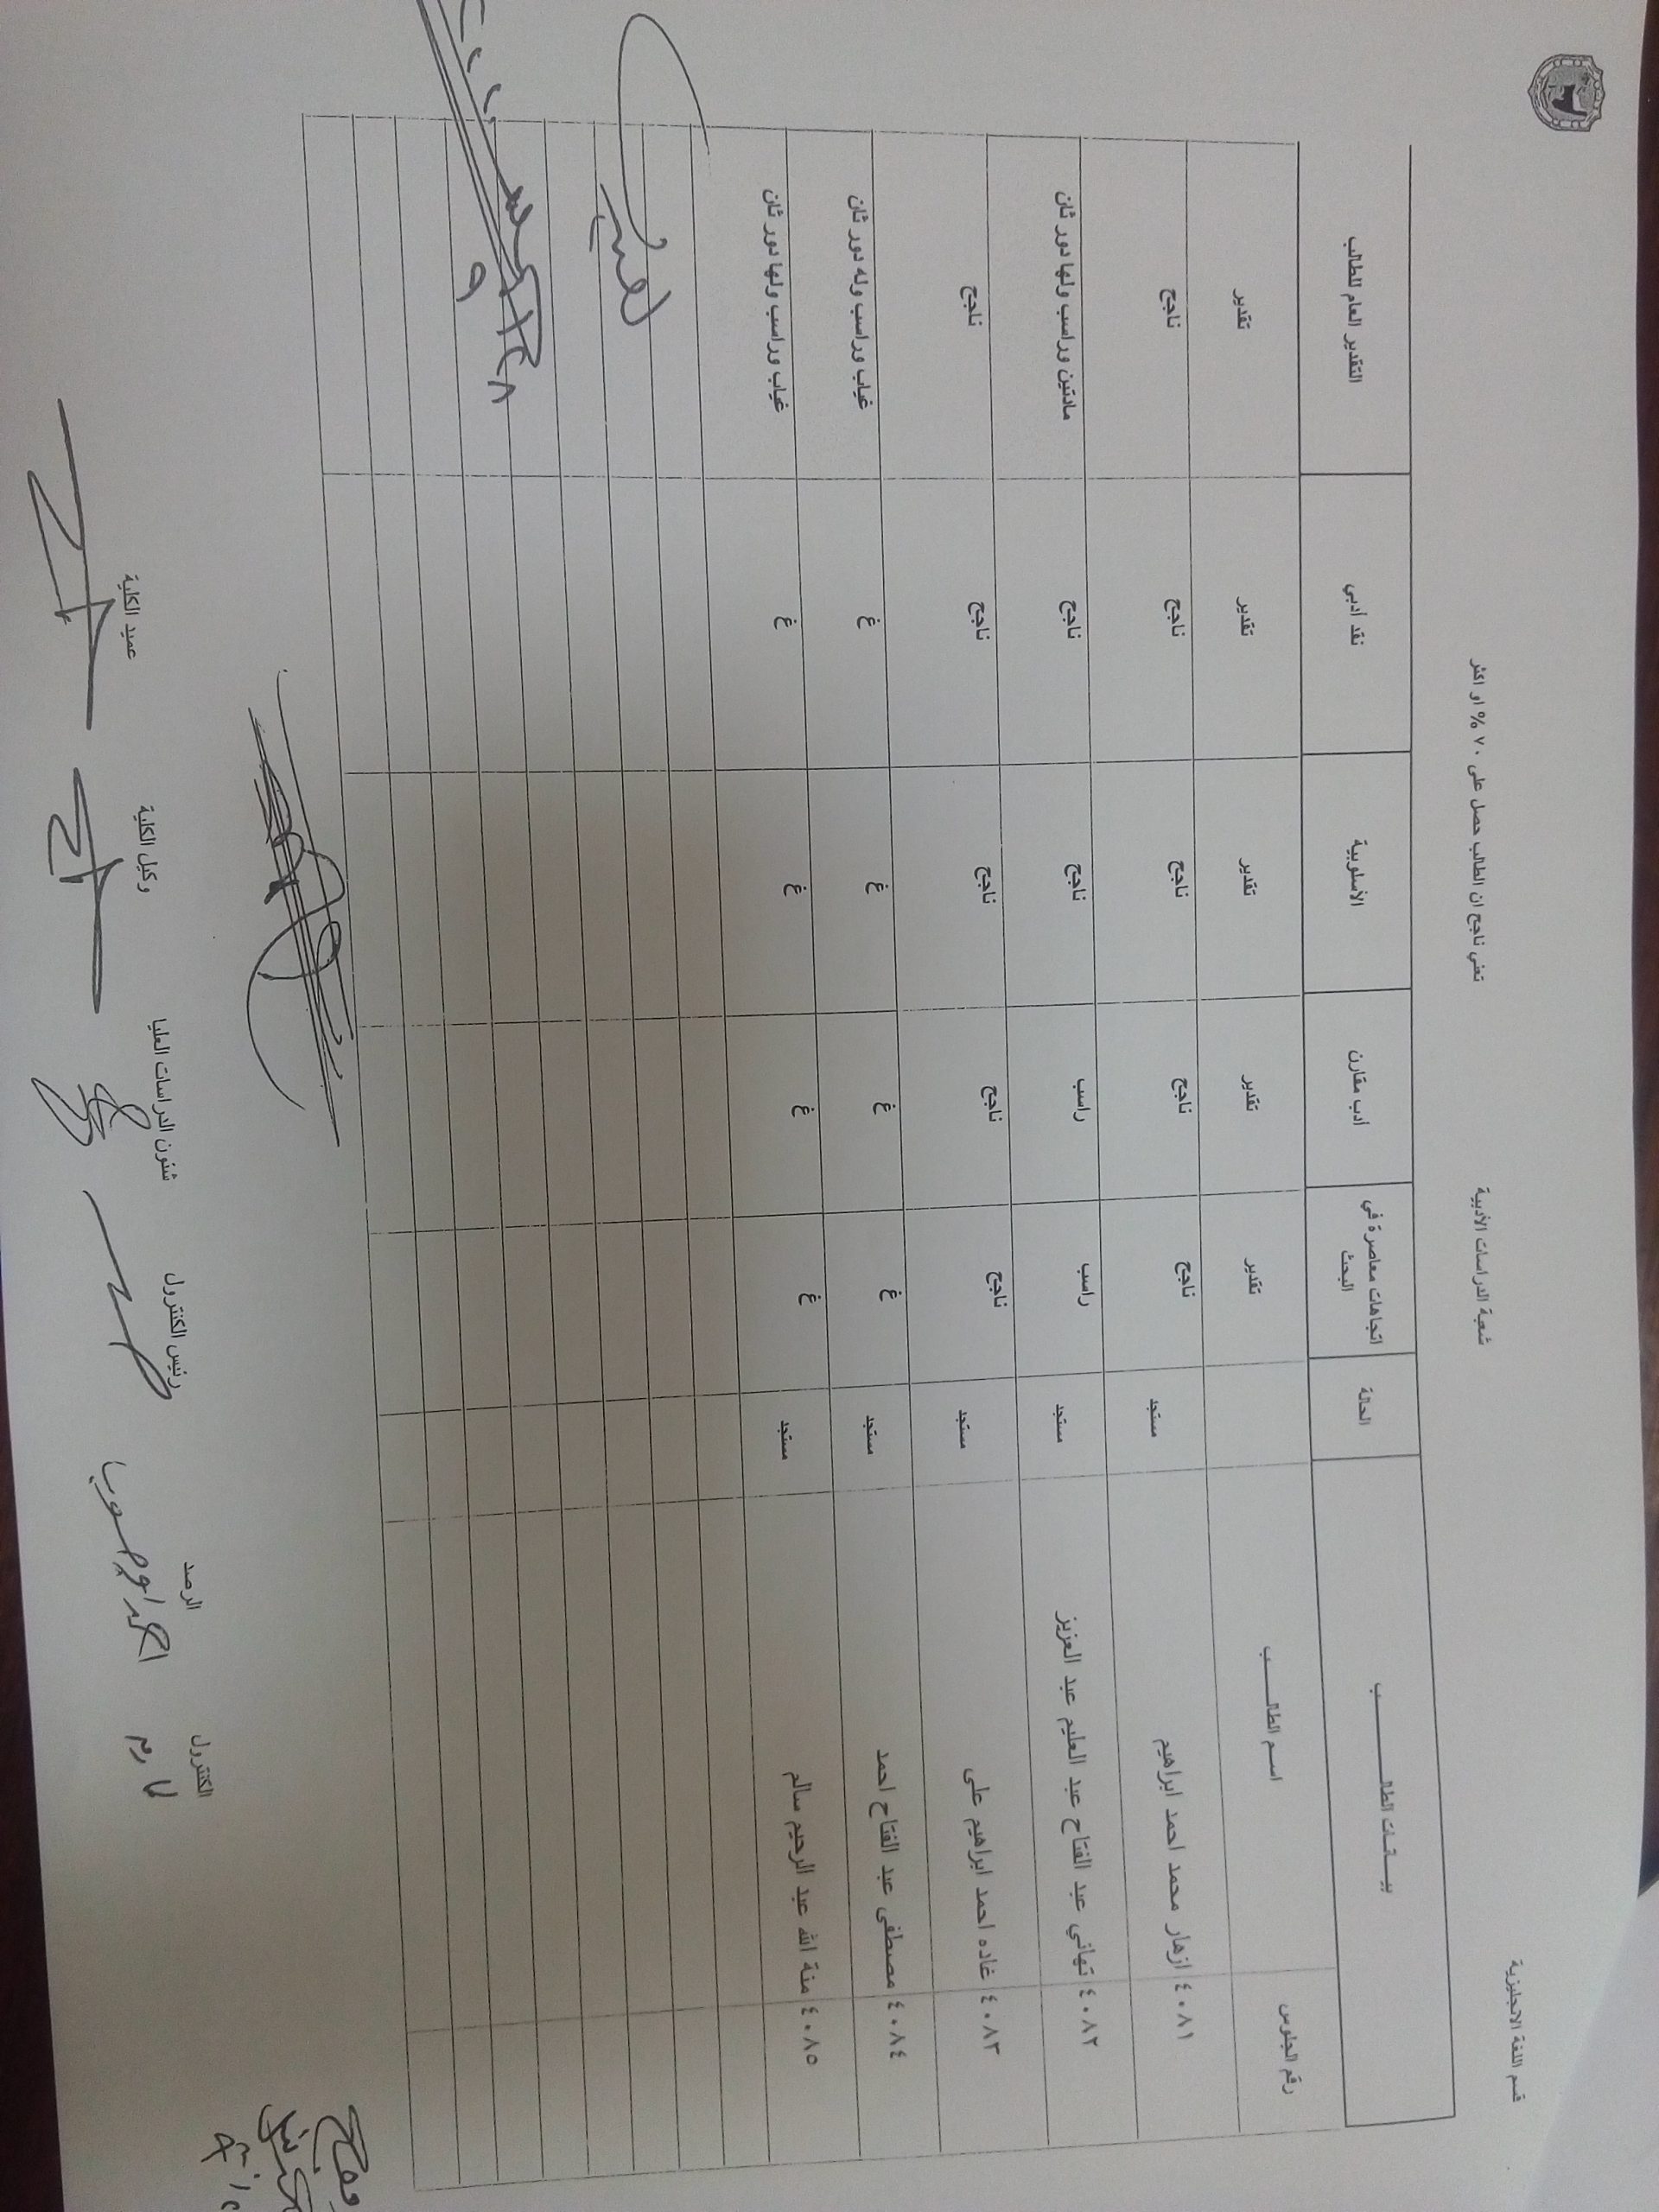 قسم اللغة الانجليزية شعبة الدراسات الأدبية تعني ناجح ان الطالب حصل على ٧٠ % او اكثر
بيـــانـــات الطالـــــــــب الحالة اتجاهات معاصرة في البحث أدب مقارن الأسلوبية نقد أدبي التقدير العام للطالب
رقم الجلوس اسم الطالـــــب تقدير تقدير تقدير تقدير تقدير
٤٠٨١ ازهار محمد احمد ابراهيم مستجد ناجح ناجح ناجح ناجح ناجح
٤٠٨٢ تهاني عبد الفتاح عبد العليم عبد العزيز مستجد راسب راسب ناجح ناجح مادتين وراسب ولها دور ثان
٤٠٨٣ غاده احمد ابراهيم على مستجد ناجح ناجح ناجح ناجح ناجح
٤٠٨٤ مصطفى عبد الفتاح احمد مستجد غ غ غ غ غياب وراسب وله دور ثان
٤٠٨٥ منة الله عبد الرحيم سالم مستجد غ غ غ غ غياب وراسب ولها دور ثان
الكنترول الرصد رئيس الكنترول شئون الدراسات العليا وكيل الكلية عميد الكلية